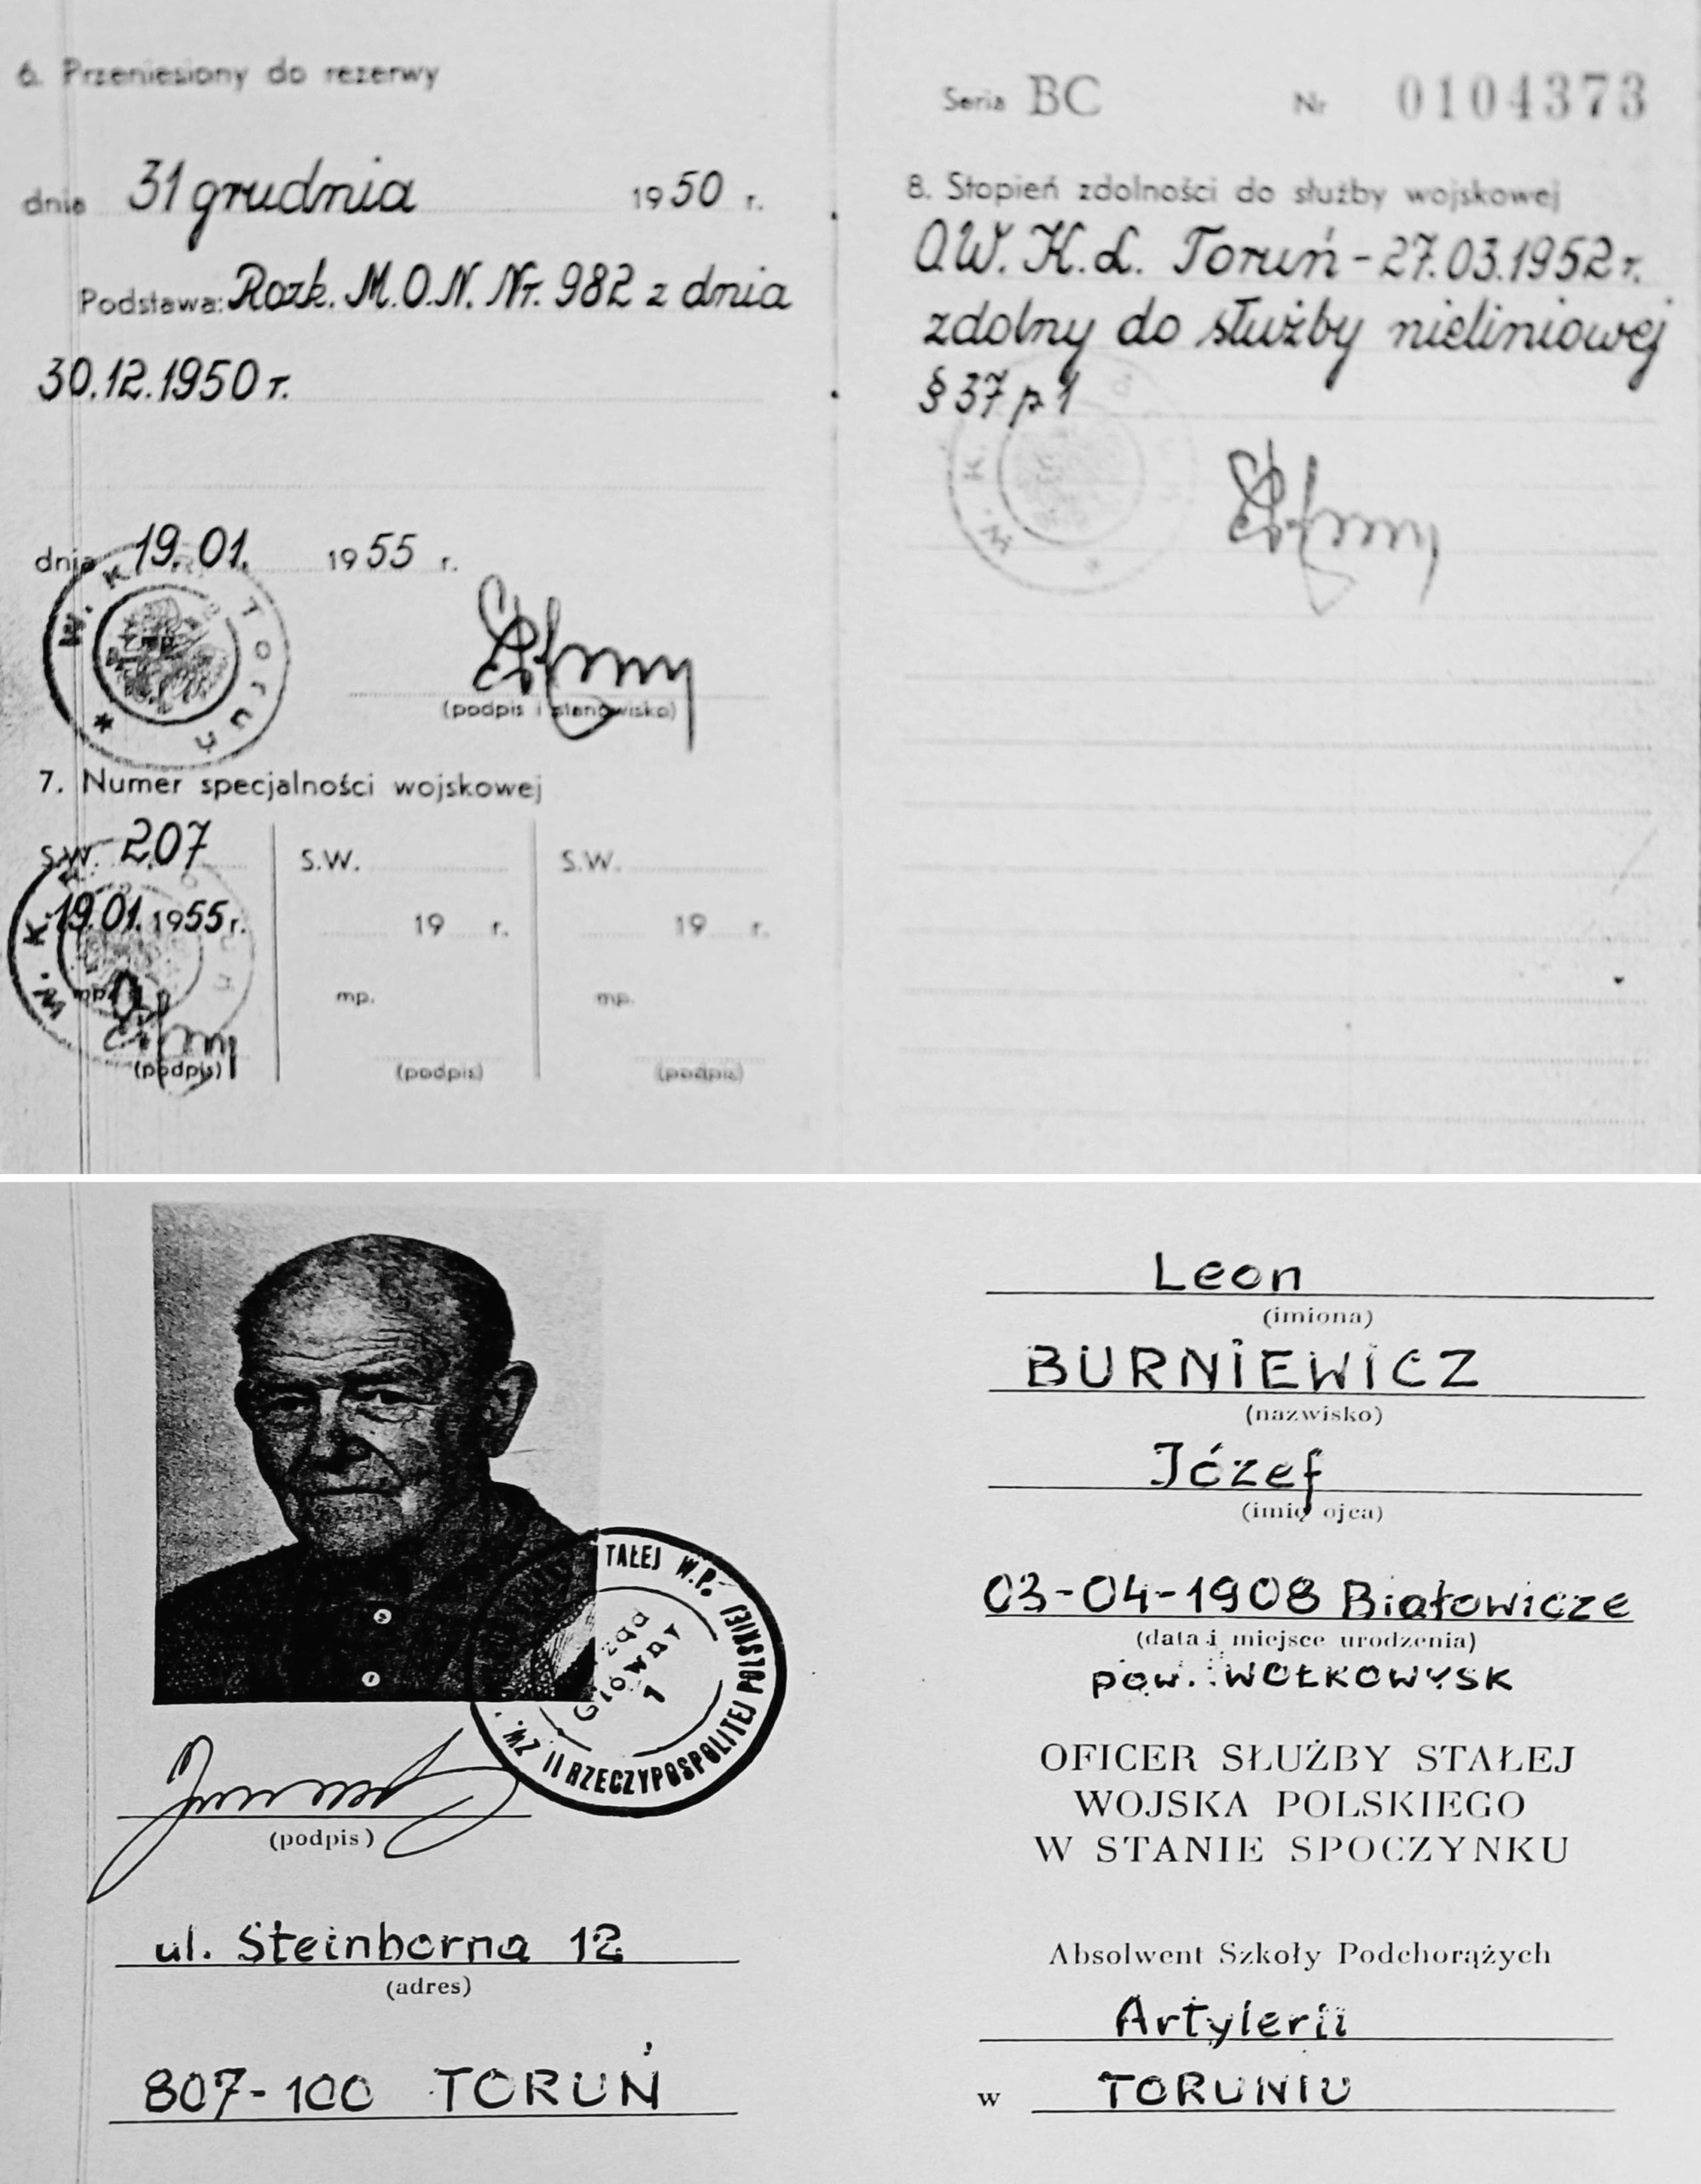 6. Przeniesiony do rezerwy
dnia 31 grudnia 1950 r.
Podstawa: Rozk. M.O.N. Nr. 982 z dnia
30.12.1950 r.
dnia 19.01. 1955 r.
W. K. R. Toruń
mp.
(podpis i stanowisko)
7. Numer specjalności wojskowej
S.W. 207
19.01.1955 r.
mp.
(podpis)
S.W.
19 r.
mp.
(podpis)
S.W.
19 r.
mp.
(podpis)
Seria BC Nr 0104373
8. Stopień zdolności do służby wojskowej
O.W.K.L. Toruń - 27.03.1952 r.
zdolny do służby nieliniowej
§ 37 p 1
W. K.
TAŁEJ W.P. II RZECZYPOSPOLITEJ POLSKIEJ
ZW.
Główny
1
(podpis)
ul. Steinborna 12
(adres)
807-100 TORUŃ
Leon
(imiona)
BURNIEWICZ
(nazwisko)
Józef
(imię ojca)
03-04-1908 Białowicze
(data i miejsce urodzenia)
pow. WOŁKOWYSK
OFICER SŁUŻBY STAŁEJ
WOJSKA POLSKIEGO
W STANIE SPOCZYNKU
Absolwent Szkoły Podchorążych
Artylerii
w TORUNIU